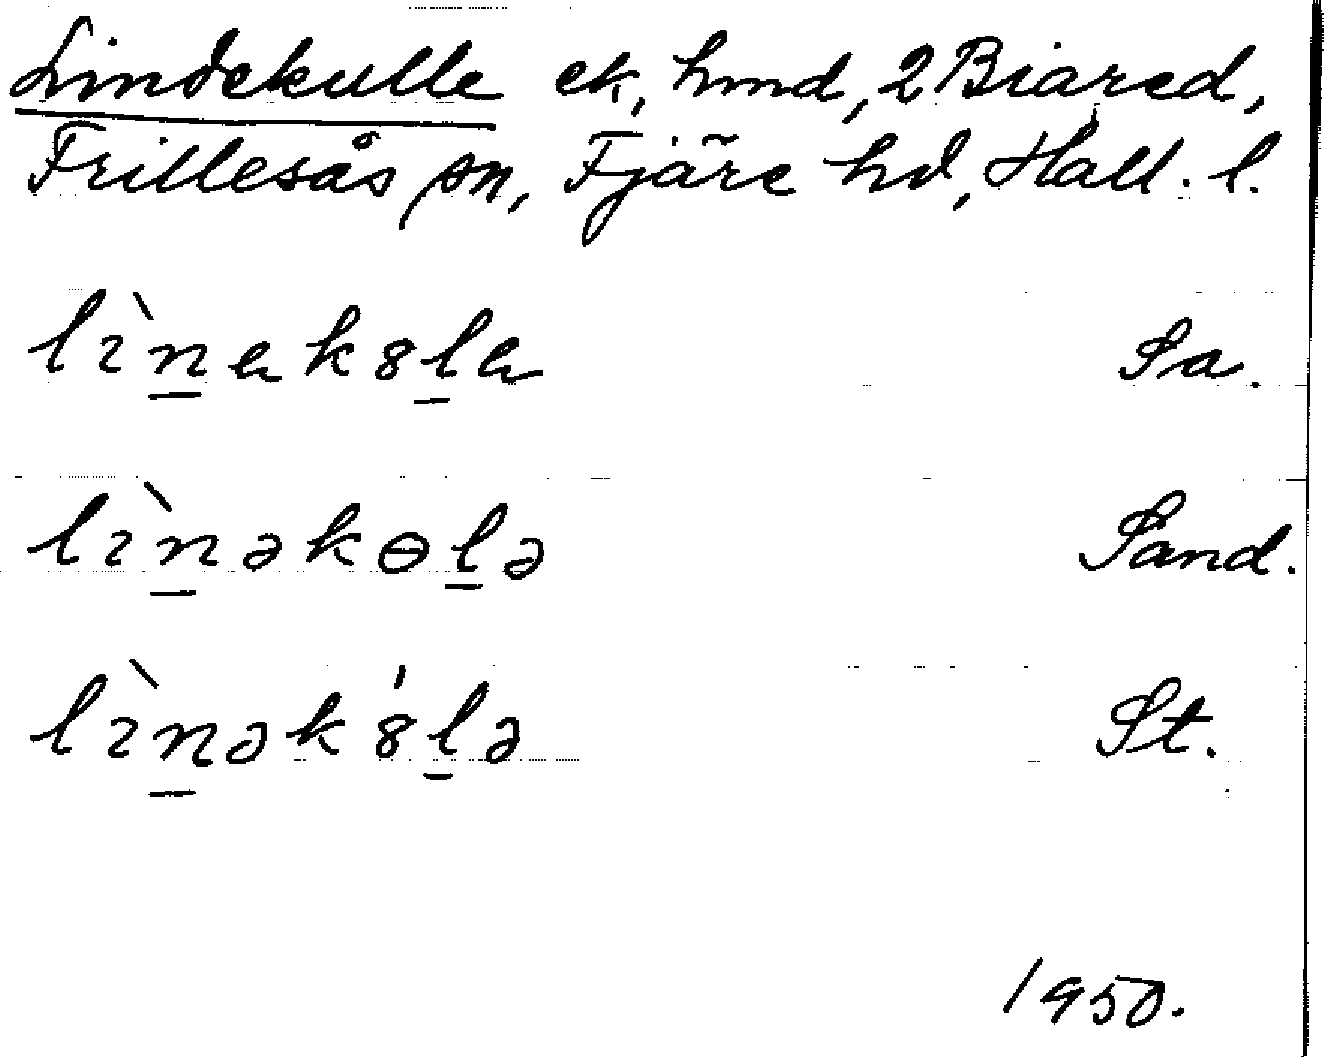 Lindekulle ek, hmd, 2 Biared,
Frillesås sn, Fjäre hd, Hall. l.
lìn̲ek8l̲e Sa.
lìn̲əkɵl̲ə Sand.
lìn̲ək8́l̲ə St.
1950.